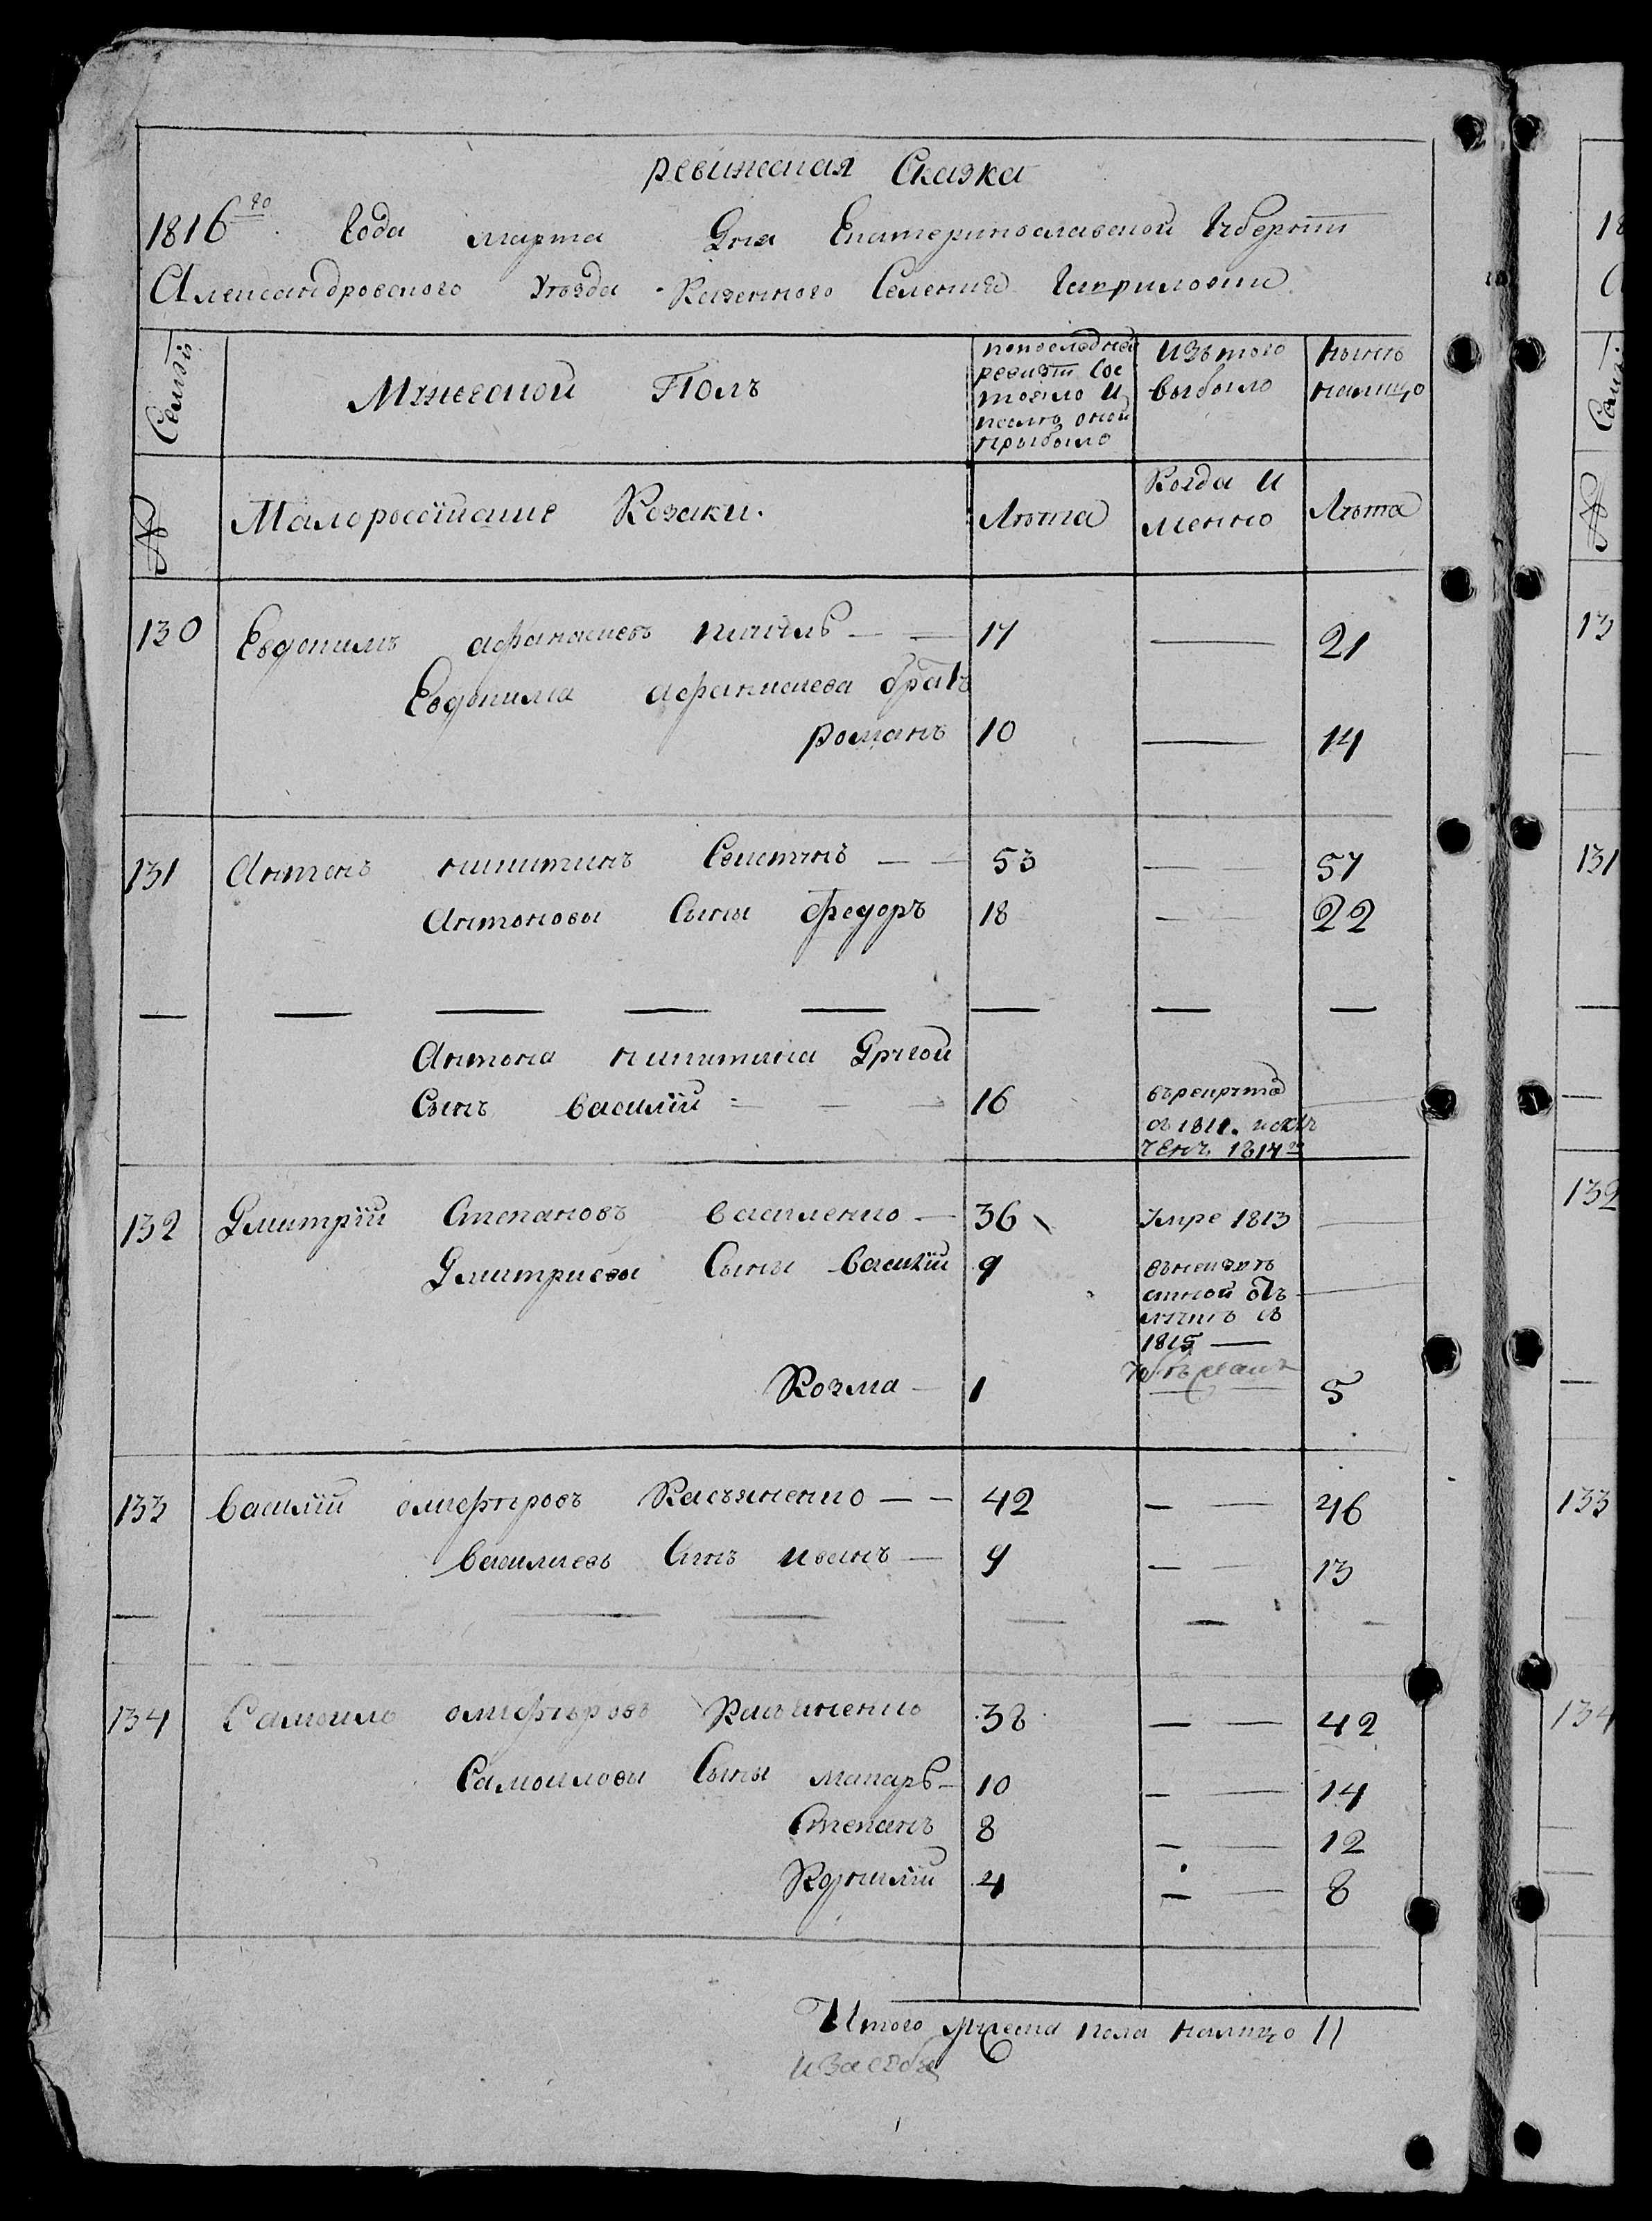 ревижская Сказка
1816го. Года марта Дня Екатеринославской Губернїи
Александровского Уѣзда Казенного Селения Гавриловки
Семьи
Мужеской Полъ
попоследней
ревизїи сос
тояло и
послѣ оной
прибыло
изътого
выбыло
нынѣ
налицо
№
Малороссїйские Козаки.
Лѣта
Когда и
менно
Лѣта
130 Евдокимъ афанасиевъ — — 17 — 21
Евдокима афанасиева братъ
романъ 10 — 14
131 Антонъ никитинъ — — 53 — — 57
Антоновы Сыны федоръ 18 — — 22
— — — — — — — —
Антона никитина Другой
Сынъ василїй — — 16 врекруты
1814го
132 Дмитрїй Степановъ василенко — 36 Умре 1813 —
Дмитриевы Сыны василїй 9
1815 —
Козма — 1 — — 5
133 василїй олиферовъ Касьяненко — — 42 — — 46
василиевъ Сынъ иванъ — 9 — — 13
— — — — — — —
134 Самойло олиферовъ Касьяненко 38 — — 42
Самойловы Сыны макаръ — 10 — — 14
Степанъ 8 — — 12
Корнилїй 4 — — 8
Итого мужеска пола налицо 11
18
13
131
132
133
134